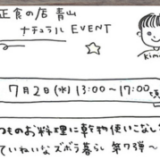 正食の店 青山
ナチュラル EVENT
7月2日(水) 13:00〜17:00
つものお料理に乾物使いこなし
ていねいなズボラ暮らし 第7弾〜